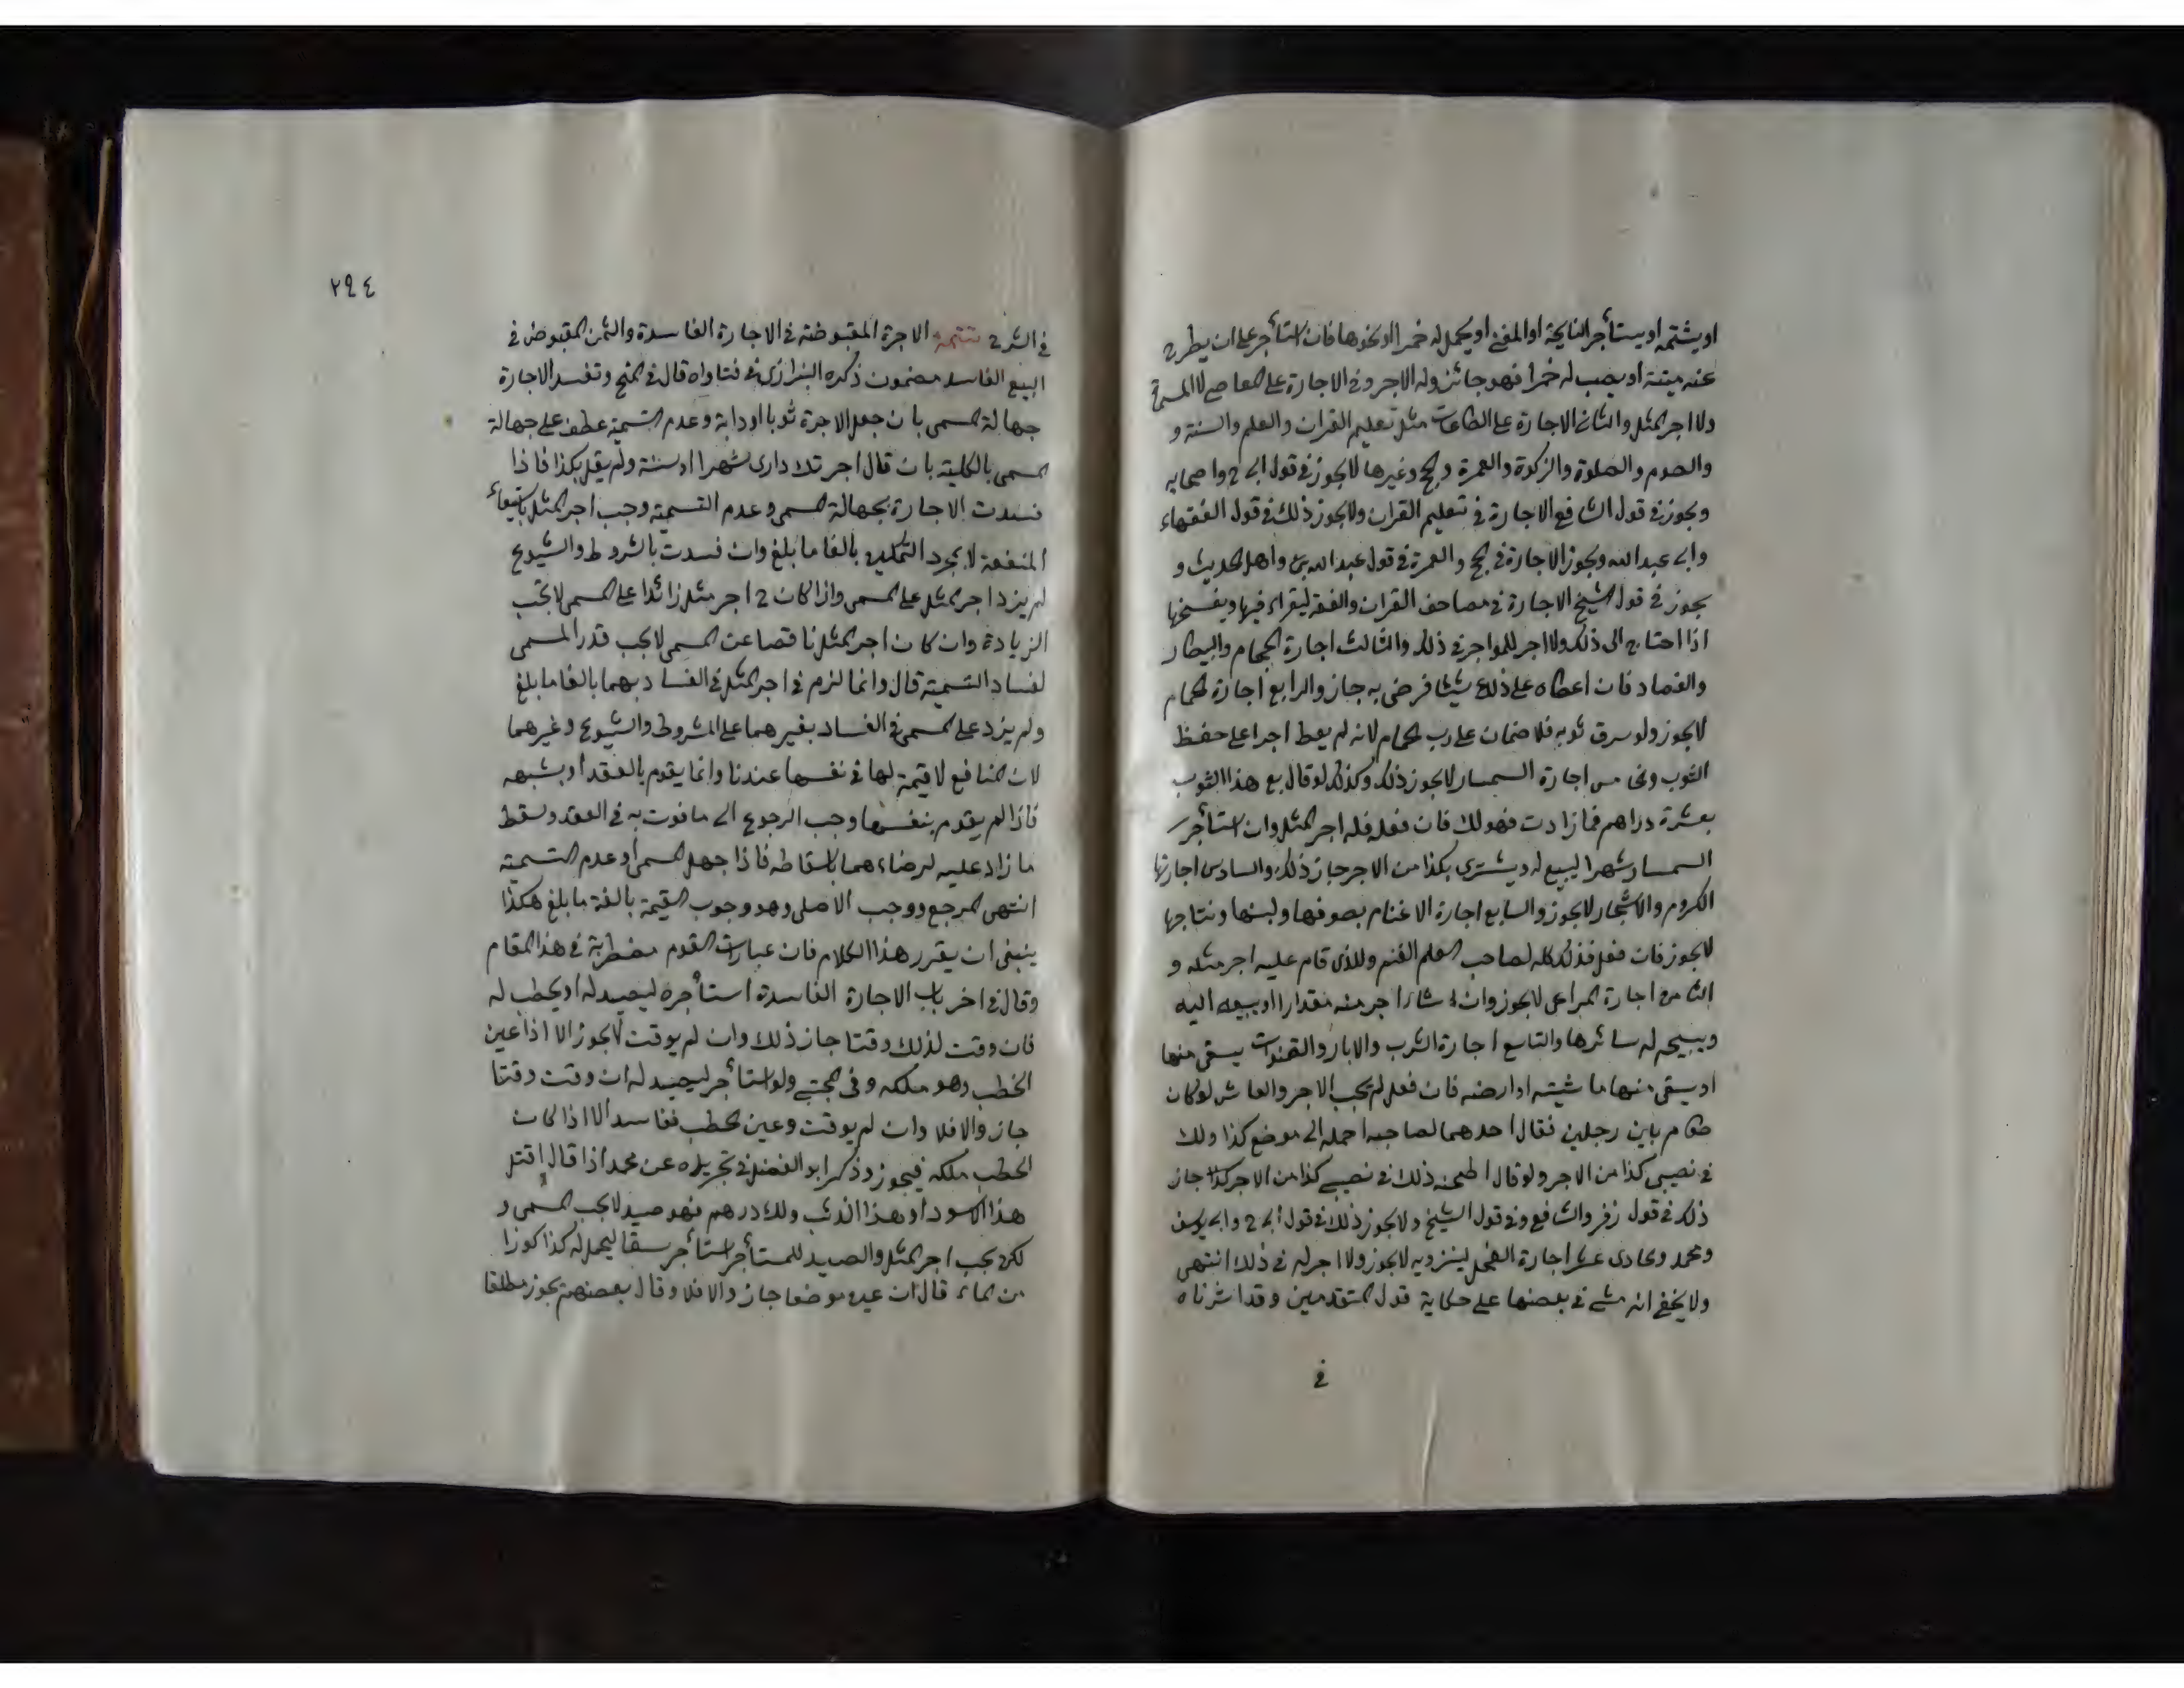 او يشتمه او يستأجر النايحة او المغني او يحمل له خمرا او نحوها فان استأجر على ان يطرح
عنه ميتة او يصب له خمرا فهو جائز وله الاجر وفي الاجارة على المعاصي لا المسمى
ولا اجر المثل والثاني الاجارة على الطاعات مثل تعليم القران والعلم والسنة و
والصوم والصلوة والزكوة والعمرة والحج وغيرها لا يجوز في قول ابي ح واصحابه
ويجوز في قول الشافعي الاجارة في تعليم القران ولا يجوز ذلك في قول الفقهاء
وابي عبد الله ويجوز الاجارة في الحج والعمرة في قول عبد الله واهل الحديث و
يجوز في قول الشيخ الاجارة في مصاحف القران والفقه ليقراء فيها ويفسخها
اذا احتاج الى ذلك ولا اجر للمواجر في ذلك والثالث اجارة الحجام والبيطار
والفصاد فان اعطاه على ذلك شيئا فرضى به جاز والرابع اجارة الحمام
لا يجوز ولو سرق ثوبه فلا ضمان على رب الحمام لانه لم يعط اجرا على حفظ
الثوب والخامس اجارة السمسار لا يجوز ذلك وكذلك لو قال بع هذا الثوب
بعشرة دراهم فما زادت فهو لك فان فعل فله اجر المثل وان استأجر
السمسار شهرا ليبيع له ويشترى بكذا من الاجر جاز ذلك والسادس اجارتها
الكروم والاشجار لا يجوز والسابع اجارة الاغنام بصوفها ولبنها ونتاجها
لا يجوز فان فعل فذلك كله لصاحب الغنم وللذى قام عليه اجر مثله و
الثامن اجارة المراعى لا يجوز وان شاء اجر منه مقدارا او يبيعه اليه
ويبيح له سائرها والتاسع اجارة الشرب والابار والقنوات يسقى منها
او يسقى منها ماشيته او ارضه فان فعل لم يجب الاجر والعاشر لو كان
طعام باين رجلين فقال احدهما لصاحبه احمله الى موضع كذا ولك
في نصيبي كذا من الاجر ولو قال اطحنه ذلك في نصيبي كذا من الاجر جاز
ذلك في قول زفر والشافعي وفي قول الشيخ ولا يجوز ذلك في قول ابي ح وابي يوسف
ومحمد والحادى عشر اجارة الفحل لينزو به لا يجوز ولا اجر له في ذلك انتهى
ولا يخفى انه مشى في بعضها على حكاية قول المتقدمين وقد اشرناه
في
٢٩٤
في الشرح تتمه الاجرة المقبوضة في الاجارة الفاسدة والثمن المقبوض في
البيع الفاسد مضمون ذكره البزازى في فتاواه قال في المنح وتفسد الاجارة
جهالة المسمى بان جعل الاجرة ثوبا او دابة وعدم التسمية عطف على جهالة
المسمى بالكلية بان قال اجرتك دارى شهرا او سنة ولم يقل بكذا فاذا
فسدت الاجارة بجهالة المسمى وعدم التسمية وجب اجر المثل باستيفاء
المنفعة لا بمجرد التمكين بالغا ما بلغ وان فسدت بالشروط والشيوع
لم يزد اجر المثل على المسمى واذا كان ح اجر مثل زائدا على المسمى لا تجب
الزيادة وان كان اجر المثل ناقصا عن المسمى لا يجب قدر المسمى
لفساد التسمية قال وانما لزم في اجر المثل في الفساد بهما بالغا ما بلغ
ولم يزد على المسمى في الفساد بغيرهما على المشروط والشيوع وغيرهما
لان المنافع لا قيمة لها في نفسها عندنا وانما يقوم بالعقد او بشبهه
فاذا لم يقوم بنفسها وجب الرجوع الى ما قوت به في العقد وسقط
ما زاد عليه لرضاءهما باسقاطه فاذا جهل المسمى او عدم التسمية
انتهى المرجع ووجب الاصلى وهو وجوب القيمة بالغة ما بلغ هكذا
ينبغى ان يقرر هذا الكلام فان عبارات القوم مضطربة في هذا المقام
وقال في اخر باب الاجارة الفاسدة استأجره ليصيد له او يحطب له
فان وقت لذلك وقتا جاز ذلك وان لم يوقت لا يجوز الا اذا عين
الخطب وهو ملكه وفي المجتبى ولو استأجر ليصيد له ان وقت وقتا
جاز والا فلا وان لم يوقت وعين الحطب ففاسد الا اذا كان
الحطب ملكه فيجوز وذكر ابو الفضل في تجريده عن محمد اذا قال اقتل
هذا الاسود او هذا الذئب ولك درهم فهو صيد لا يجب المسمى و
لكن يجب اجر المثل والصيد للمستأجر استأجر سقا ليحمل له كذا كوزا
من الماء قال ان عين موضعا جاز والا فلا وقال بعضهم يجوز مطلقا